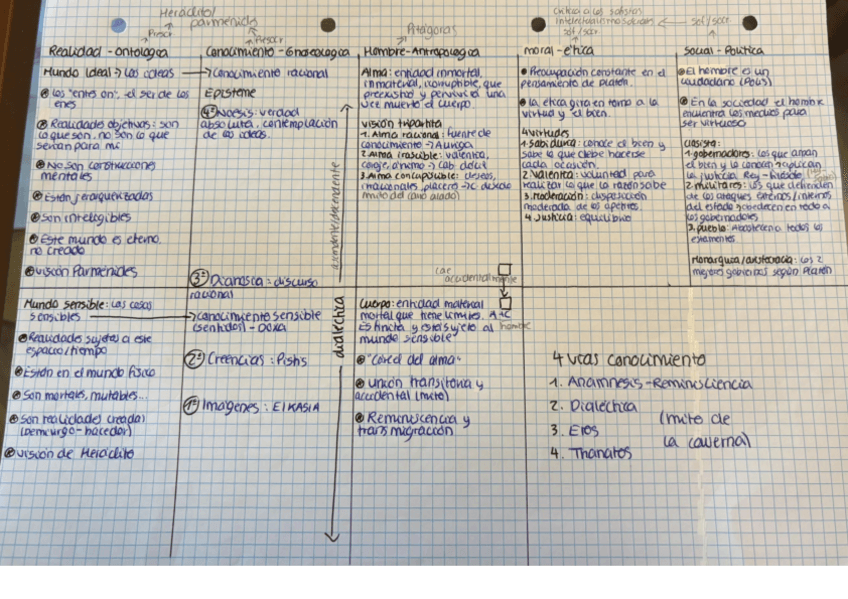 Heráclito/
parménides
Presocr
Presocr
Pitágoras
Crítica a los sofistas
intelectualismo socrático
sof/socr
sof/socr
Realidad - ontológica
Mundo Ideal → Las ideas
los "entes on", el ser de los
enes
Realidades objetivas: son
lo que son, no son lo que
serían para mi
No son construcciones
mentales
Están jerarquizadas
son inteligibles
Este mundo es eterno,
no creado
visión Parménides
Mundo sensible: Las cosas
sensibles
Realidades sujetas a este
espacio/tiempo
Están en el mundo físico
son mortales, mutables...
son realidades creadas
(Demiurgo - hacedor)
visión de Heráclito
Conocimiento - Gnoseológica
Conocimiento racional
Episteme
4º Noesis: verdad
absoluta, contemplación
de las ideas.
3º Dianoia: discurso
racional
conocimiento sensible
(sentidos) - DOXA
2º Creencias: Pistis
1º Imágenes: EIKASIA
ascendente/descendente
dialéctica
Hombre - Antropológica
Alma: entidad inmortal,
inmaterial, incorruptible, que
preexistió y pervive una
vez muerto el cuerpo
visión tripartita
1. Alma racional: fuente de
conocimiento → Auriga
2. Alma irascible: valentía,
coraje, ánimo → cab dócil
3. Alma concupiscible: deseos,
irracionales, placeres → c desbocado
mito del carro alado
accidentalmente
Cuerpo: entidad material
mortal que tiene límites. A+C
Es finita y está sujeto al hombre
mundo sensible
"cárcel del alma"
unión transitoria y
accidental (mito)
Reminiscencia y
transmigración
moral - ética
Preocupación constante en el
pensamiento de Platón.
La ética gira en torno a la
virtud y el bien.
4 virtudes
1. Sabiduría: conoce el bien y
sabe lo que debe hacerse
cada ocasión.
2. Valentía: voluntad para
realizar lo que la razón sabe
3. moderación: disposición
moderada de los apetitos.
4. Justicia: equilibrio
social - Política
El hombre es un
ciudadano (Polis)
En la sociedad el hombre
encuentra los medios para
ser virtuoso
clasista:
1. gobernadores: los que aman
el bien y la conocen → aplican
la justicia Rey-filósofo
2. militares: los que defienden
de los ataques externos/internos
del estado → obedecen en todo a
los gobernadores
3. pueblo: Abastecen a todos los
estamentos
Monarquía/aristocracia: los 2
mejores gobiernos según Platón
4 vías conocimiento
1. Anamnesis - Reminiscencia
2. Dialéctica
3. Eros
4. Thanatos
(mito de
la caverna)